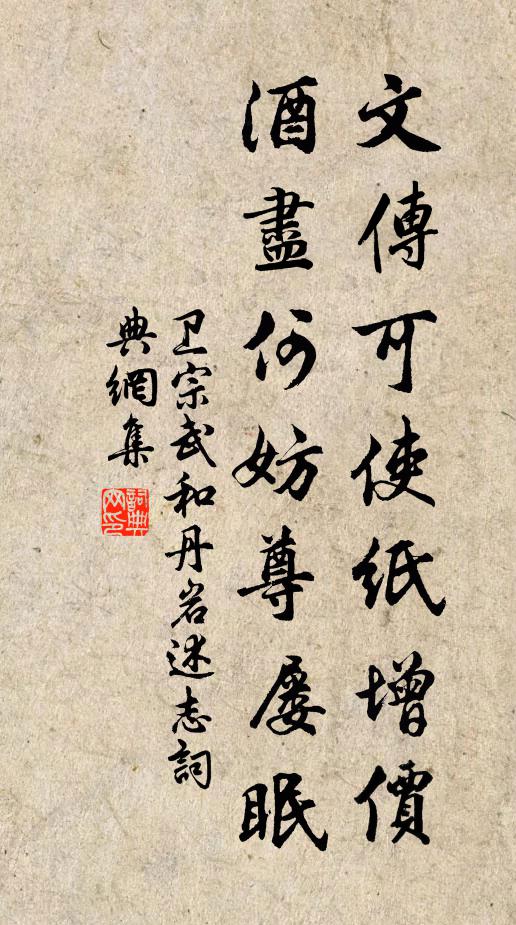 文傳可使紙增價
酒盡何妨尊屢眠
卫宗武和丹岩述志詞
典網集
詞典
网印